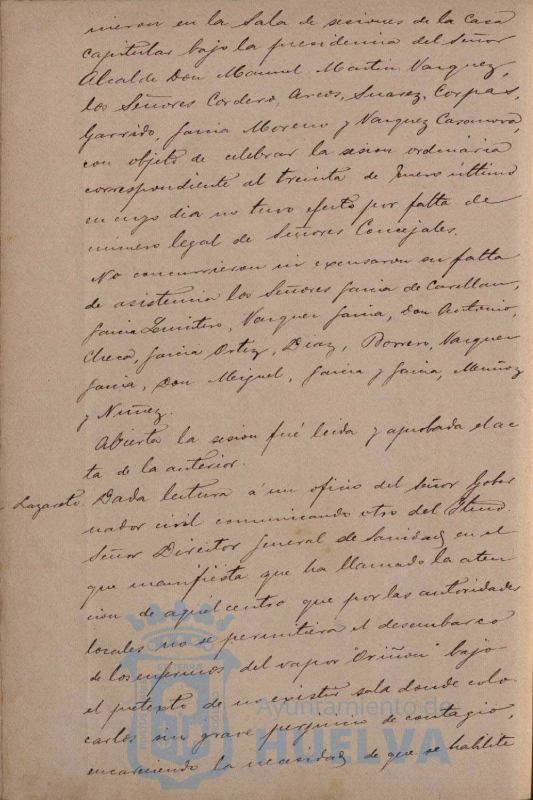 nieron en la Sala de sesiones de la Casa
Capitular bajo la presidencia del Señor
Alcalde Don Manuel Martin Vazquez,
los Señores Cordero, Arcos, Suarez, Corpas,
Garrido, Garcia Moreno y Vazquez Casanova,
con objeto de celebrar la sesion ordinaria
correspondiente al treinta de Enero último
en cuyo dia no tuvo efecto por falta de
número legal de Señores Concejales.
No concurrieron ni excusaron su falta
de asistencia los Señores Garcia de
Garcia Quintero, Vazquez Garcia, Don Antonio,
Checa, Garcia Ortiz, Diaz, Borrero, Vazquez
Garcia, Don Miguel, Garcia y Garcia, Muñoz
y Nuñez.
Abierta la sesion fué leida y aprobada el ac
ta de la anterior.
Lazareto Dada lectura á un oficio del Señor Gober
nador civil comunicando otro del Iltmo.
Señor Director General de Sanidad en el
que manifiesta que ha llamado la aten
cion de aquel centro que por las autoridades
locales no se permitiera el desembarco
de los enfermos del vapor "Oriñon" bajo
el pretexto de no existir sala donde colo
carlos sin grave perjuicio de contagio,
encareciendo la necesidad de que se habilite
Ayuntamiento de
HUELVA